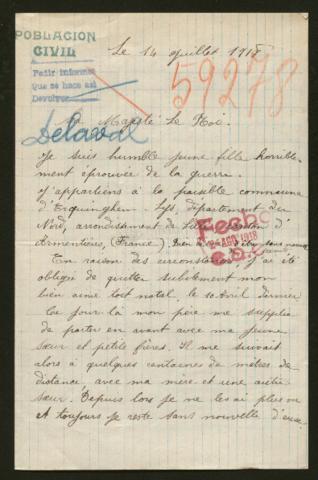 POBLACION
CIVIL
Pedir informes
Que se hace así
Devolver
Le 14 Juillet 1918
59278
Delaval
Majesté Le Roi.
Je suis humble jeune fille horrible-
ment éprouvée de la guerre.
J'appartiens à la paisible commune
d'Erquinghem Lys, département du
Nord, arrondissement de Lille, canton d'
Armentières, (France),
Fecha
AGO 1918
En raison des circonstances j'ai été
obligée de quitter subitement mon
bien aimé toit natal, le 10 Avril dernier
Ce jour là mon père me supplia
de partir en avant avec ma jeune
sœur et petits frères. Il me suivait
alors à quelques centaines de mètres de
distance, avec ma mère et une autre
sœur. Depuis lors je ne les ai plus vu
et toujours je reste sans nouvelle d'eux.